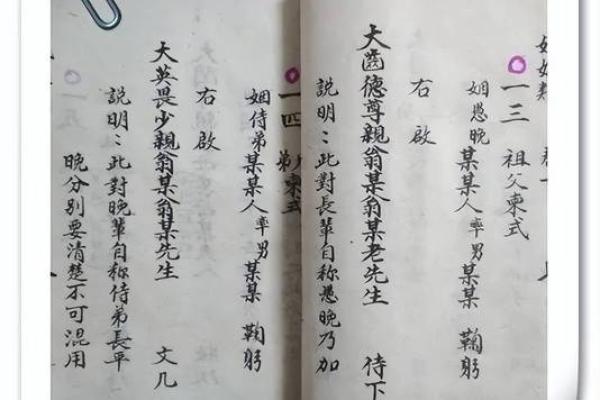 一三 祖父柬式
姻愚晚某某人率男某某 鞠躬
右啟
大齒德尊親翁某翁某老先生 待下
說明：此對長輩自称愚晚乃加
一四 弟柬式
姻侍弟某某人率男某某 鞠躬
右啟
大英畏少親翁某翁某先生 文几
說明：此對晚輩自称侍弟長平
晚分別要清楚不可混用